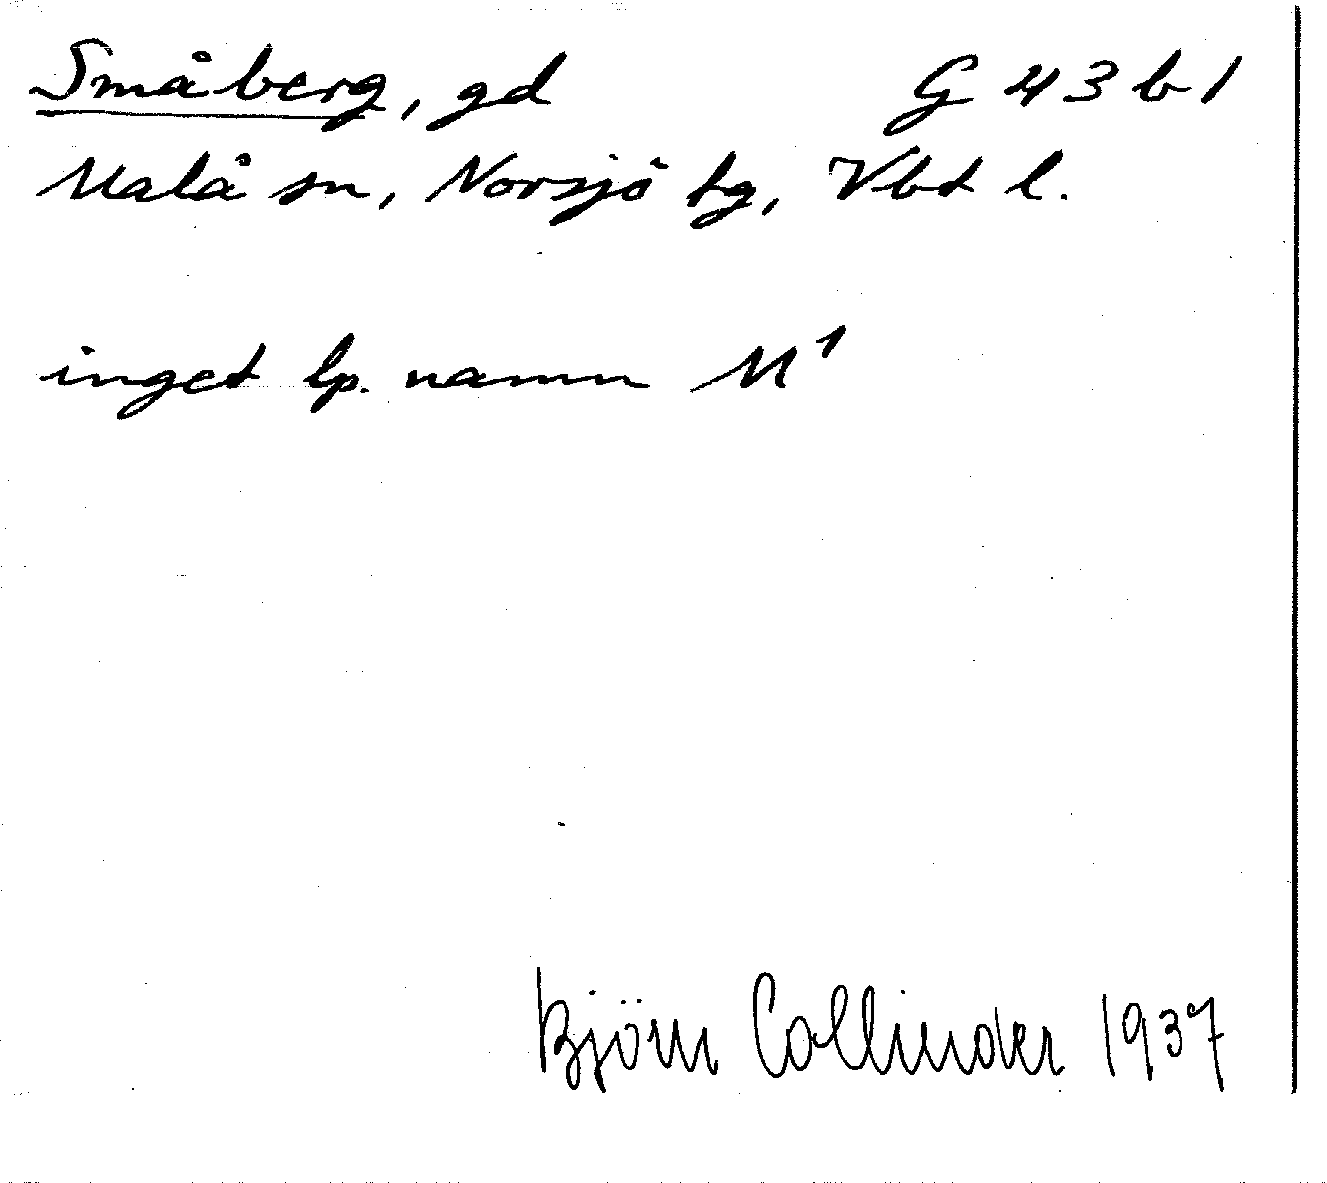 Småberg, gd G 43 b 1
Malå sn, Norsjö tg, Vbt l.
inget lp. namn M¹
Björn Collinder 1937